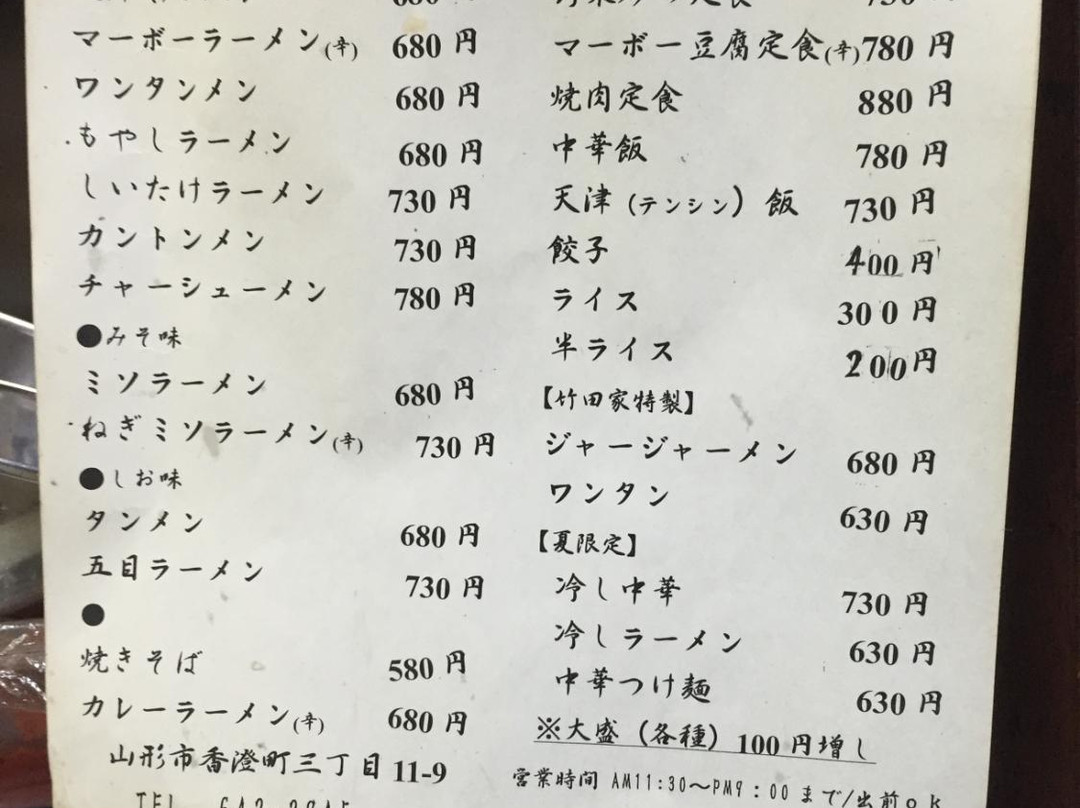 マーボーラーメン(辛) 680円
ワンタンメン 680円
もやしラーメン 680円
しいたけラーメン 730円
カントンメン 730円
チャーシューメン 780円
●みそ味
ミソラーメン 680円
ねぎミソラーメン(辛) 730円
●しお味
タンメン 680円
五目ラーメン 730円
●
焼きそば 580円
カレーラーメン(辛) 680円
山形市香澄町三丁目11-9
マーボー豆腐定食(辛)780円
焼肉定食 880円
中華飯 780円
天津(テンシン)飯 730円
餃子 400円
ライス 300円
半ライス 200円
【竹田家特製】
ジャージャーメン 680円
ワンタン 630円
【夏限定】
冷し中華 730円
冷しラーメン 630円
中華つけ麺 630円
※大盛(各種)100円増し
営業時間 AM11:30～PM9:00まで/出前ok